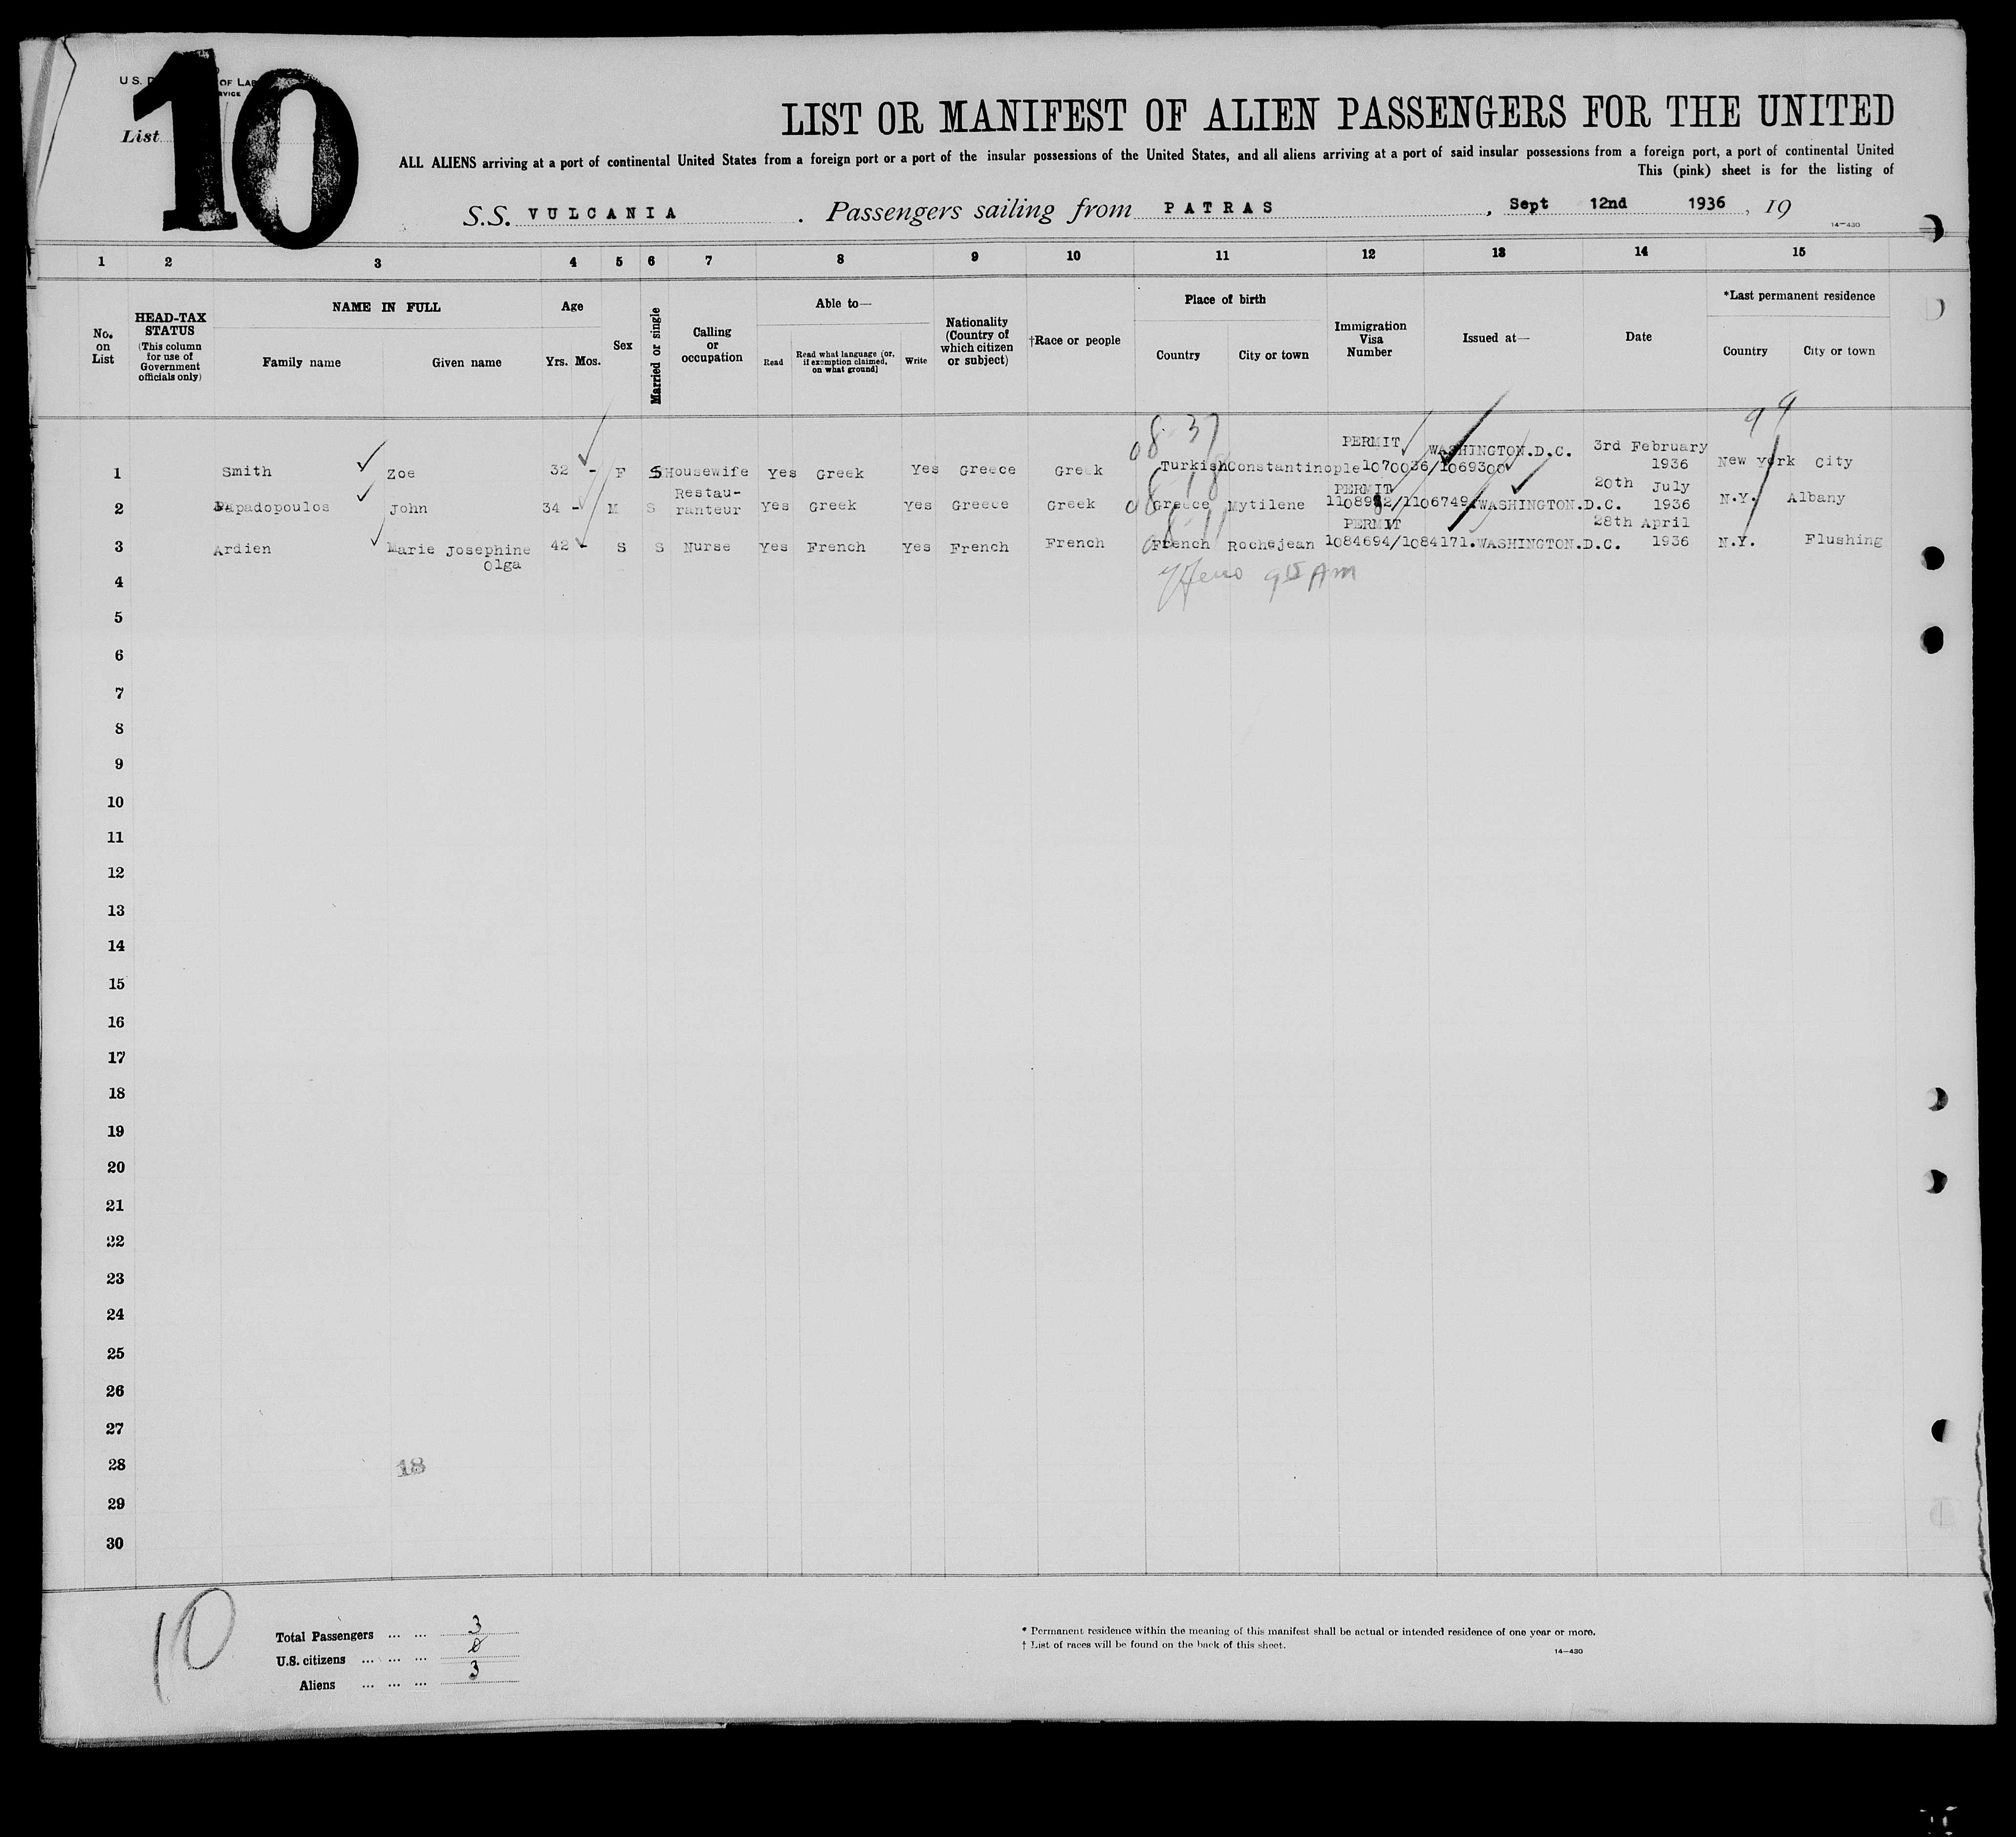 10
U.S. D OF LAB
RVICE
List
LIST OR MANIFEST OF ALIEN PASSENGERS FOR THE UNITED
ALL ALIENS arriving at a port of continental United States from a foreign port or a port of the insular possessions of the United States, and all aliens arriving at a port of said insular possessions from a foreign port, a port of continental United
This (pink) sheet is for the listing of
S.S. VULCANIA . Passengers sailing from PATRAS , Sept 12nd 1936 , 19
14—430
1 2 3 4 5 6 7 8 9 10 11 12 13 14 15
No. on List
HEAD-TAX STATUS (This column for use of Government officials only)
NAME IN FULL
Family name Given name
Age
Yrs. Mos.
Sex
Married or single
Calling or occupation
Able to—
Read Read what language (or, if exemption claimed, on what ground) Write
Nationality (Country of which citizen or subject)
†Race or people
Place of birth
Country City or town
Immigration Visa Number
Issued at—
Date
*Last permanent residence
Country City or town
08 37 99
PERMIT WASHINGTON.D.C. 3rd February
1 Smith Zoe 32 - F S Housewife Yes Greek Yes Greece Greek Turkish Constantinople 1070036/1069300 1936 New York City
Restau- PERMIT 20th July
2 Papadopoulos John 34 - M S ranteur Yes Greek Yes Greece Greek Greece Mytilene 1108982/1106749. WASHINGTON.D.C. 1936 N.Y. Albany
PERMIT 28th April
3 Ardien Marie Josephine 42 - S S Nurse Yes French Yes French French French Rochejean 1084694/1084171. WASHINGTON.D.C. 1936 N.Y. Flushing
Olga
4
5
6
7
8
9
10
11
12
13
14
15
16
17
18
19
20
21
22
23
24
25
26
27
28 18
29
30
10
Total Passengers ... ... 3
U.S. citizens ... ... ... 0
Aliens ... ... ... 3
* Permanent residence within the meaning of this manifest shall be actual or intended residence of one year or more.
† List of races will be found on the back of this sheet.
14—430